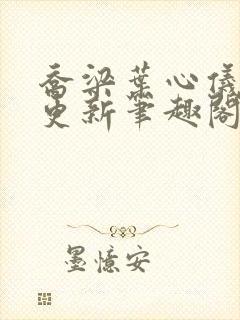 乔梁葉心儀
更新筆趣閣
墨憶安